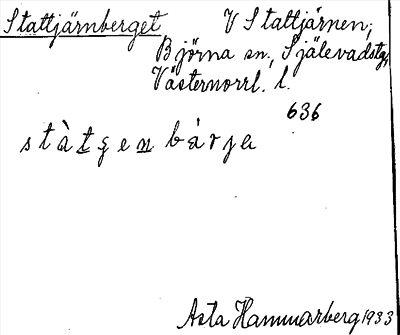 Stattjärnberget V Stattjärnen,
Björna sn, Själevadstg,
Västernorrl. l.
636
stàtʂen bárja
Asta Hammarberg 1933